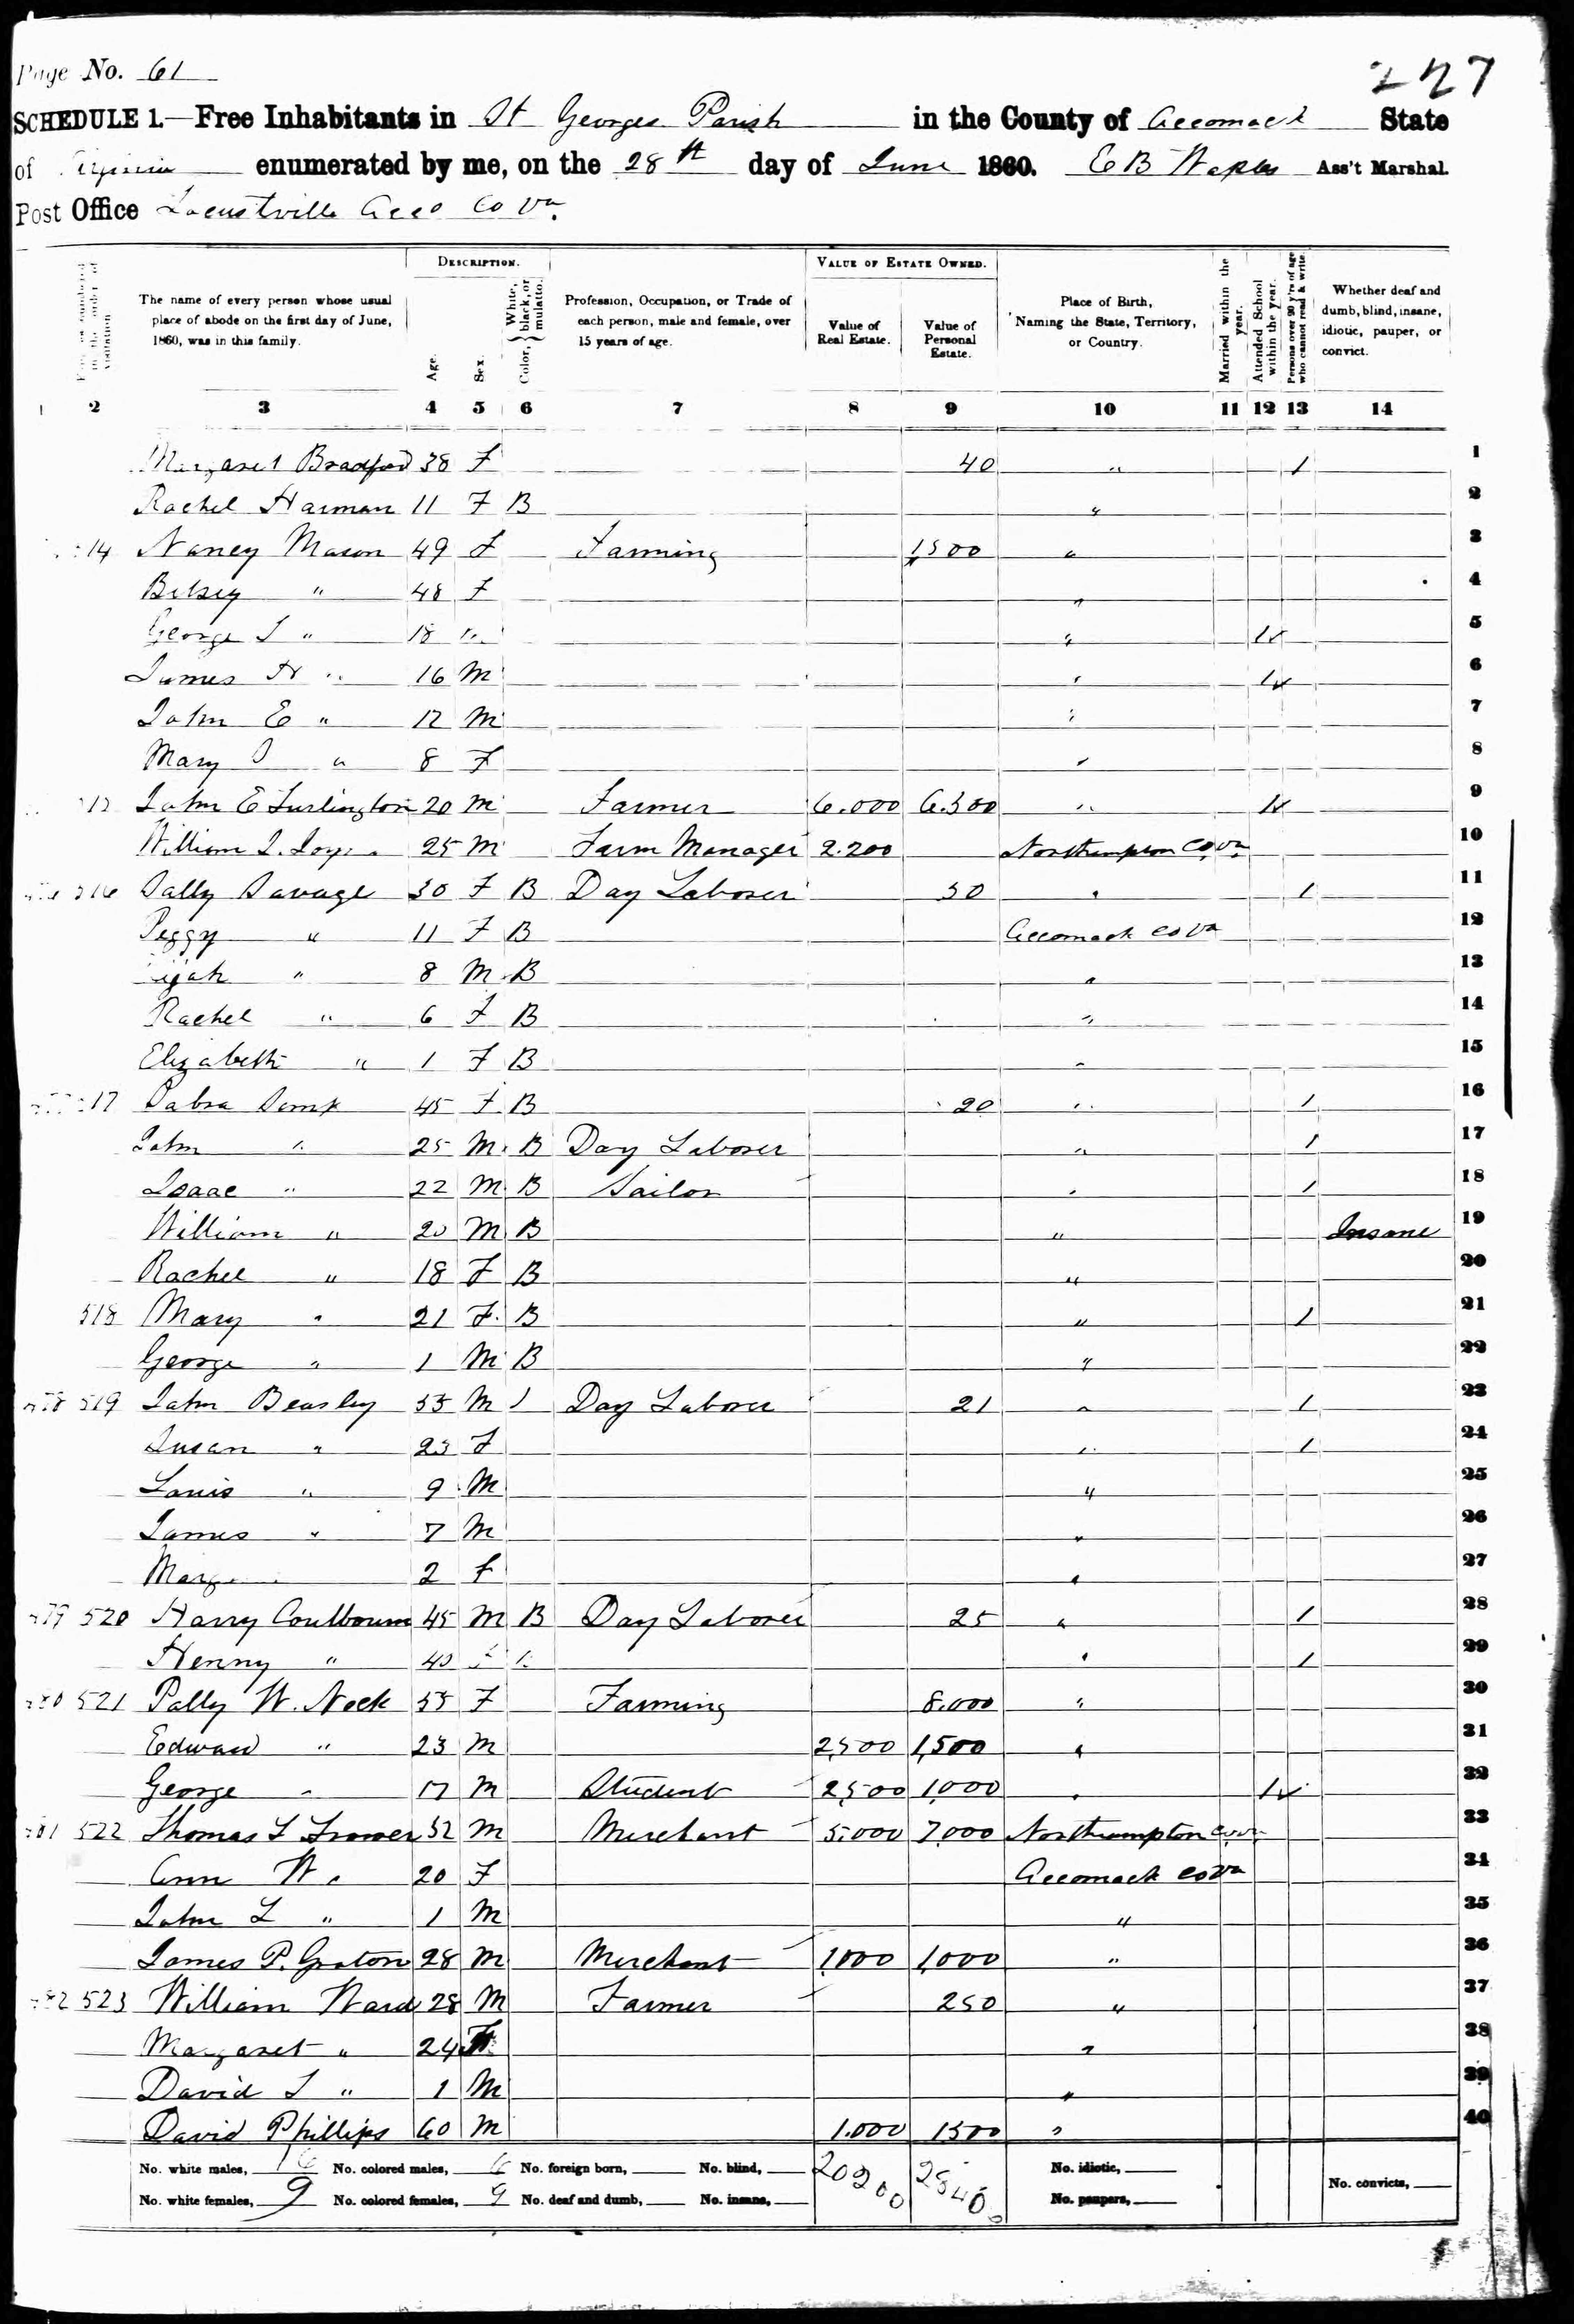 Page No. 61
227
SCHEDULE 1.—Free Inhabitants in St Georges Parish in the County of Accomack State
of Virginia enumerated by me, on the 28th day of June 1860. E B Ass't Marshal.
Post Office Locustville Acco Co Va.
DESCRIPTION. VALUE OF ESTATE OWNED.
The name of every person whose usual place of abode on the first day of June, 1860, was in this family.
Age. Sex. Color, White, black, or mulatto.
Profession, Occupation, or Trade of each person, male and female, over 15 years of age.
Value of Real Estate. Value of Personal Estate.
Place of Birth, Naming the State, Territory, or Country.
Married within the year. Attended School within the year. Persons over 20 y'rs of age who cannot read & write.
Whether deaf and dumb, blind, insane, idiotic, pauper, or convict.
1 2 3 4 5 6 7 8 9 10 11 12 13 14
Margaret Bradford 38 F 40 " 1 1
Rachel Harman 11 F B " 2
14 Nancy Mason 49 F Farming 1,500 " 3
Betsey " 48 F " 4
George " 18 " 1 5
James H " 16 M " 1 6
John E " 12 M " 7
Mary " 8 F " 8
John E Turlington 20 M Farmer 6.000 6.300 " 1 9
William 25 M Farm Manager 2.200 Northampton Co Va 10
Sally Savage 30 F B Day Laborer 30 " 1 11
Peggy " 11 F B Accomack Co Va 12
" 8 M B " 13
Rachel " 6 F B " 14
Elizabeth " 1 F B " 15
17 Sabra 45 F B 20 " 1 16
John " 25 M B Day Laborer " 1 17
Isaac " 22 M B Sailor " 1 18
William " 20 M B " Insane 19
Rachel " 18 F B " 20
518 Mary " 21 F B " 1 21
George " 1 M B " 22
519 John Beasley 55 M Day Laborer 21 " 1 23
Susan " 23 F " 1 24
Louis " 9 M " 25
James " 7 M " 26
2 F " 27
520 Harry Coulbourn 45 M B Day Laborer 25 " 1 28
Henny " 40 " 1 29
521 W. Nock 55 F Farming 8.000 " 30
Edward " 23 M 2,500 1,500 " 31
George " 17 M Student 2,500 1,000 " 1 32
522 Thomas 32 M Merchant 5.000 7,000 Northampton Co Va 33
Ann W " 20 F Accomack Co Va 34
John L " 1 M " 35
James P. 28 M Merchant 1,000 1,000 " 36
523 William Ward 28 M Farmer 250 " 37
Margaret " 24 F " 38
David " 1 M " 39
David Phillips 60 M 1.000 1500 " 40
No. white males, 16 No. colored males, 6 No. foreign born, No. blind, 20200 No. idiotic,
No. white females, 9 No. colored females, 9 No. deaf and dumb, No. insane, No. paupers, No. convicts,